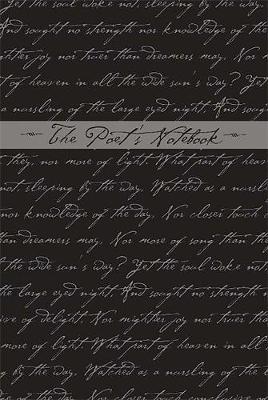 get the soul woke not sleeping by the way.
And sought no strength nor knowledge of the
mightier joy nor truer than dreamers may, Nor m
t of heaven in all the wide sun's way? Yet the s
a nursling of the large eyed night, And soug
The Poet's Notebook
they, nor more of light. What part of heav
not sleeping by the way. Watched as a nurslin
nor knowledge of the day, Nor closer touch
than dreamers may, Nor more of song than the
the wide sun's way? Yet the soul woke not
the large eyed night, And sought no strength n
sive of delight, Nor mightier joy nor truer than
more of light. What part of heaven in all the w
ing by the way. Watched as a nursling of the lar
nor knowledge of the day, Nor closer touch co